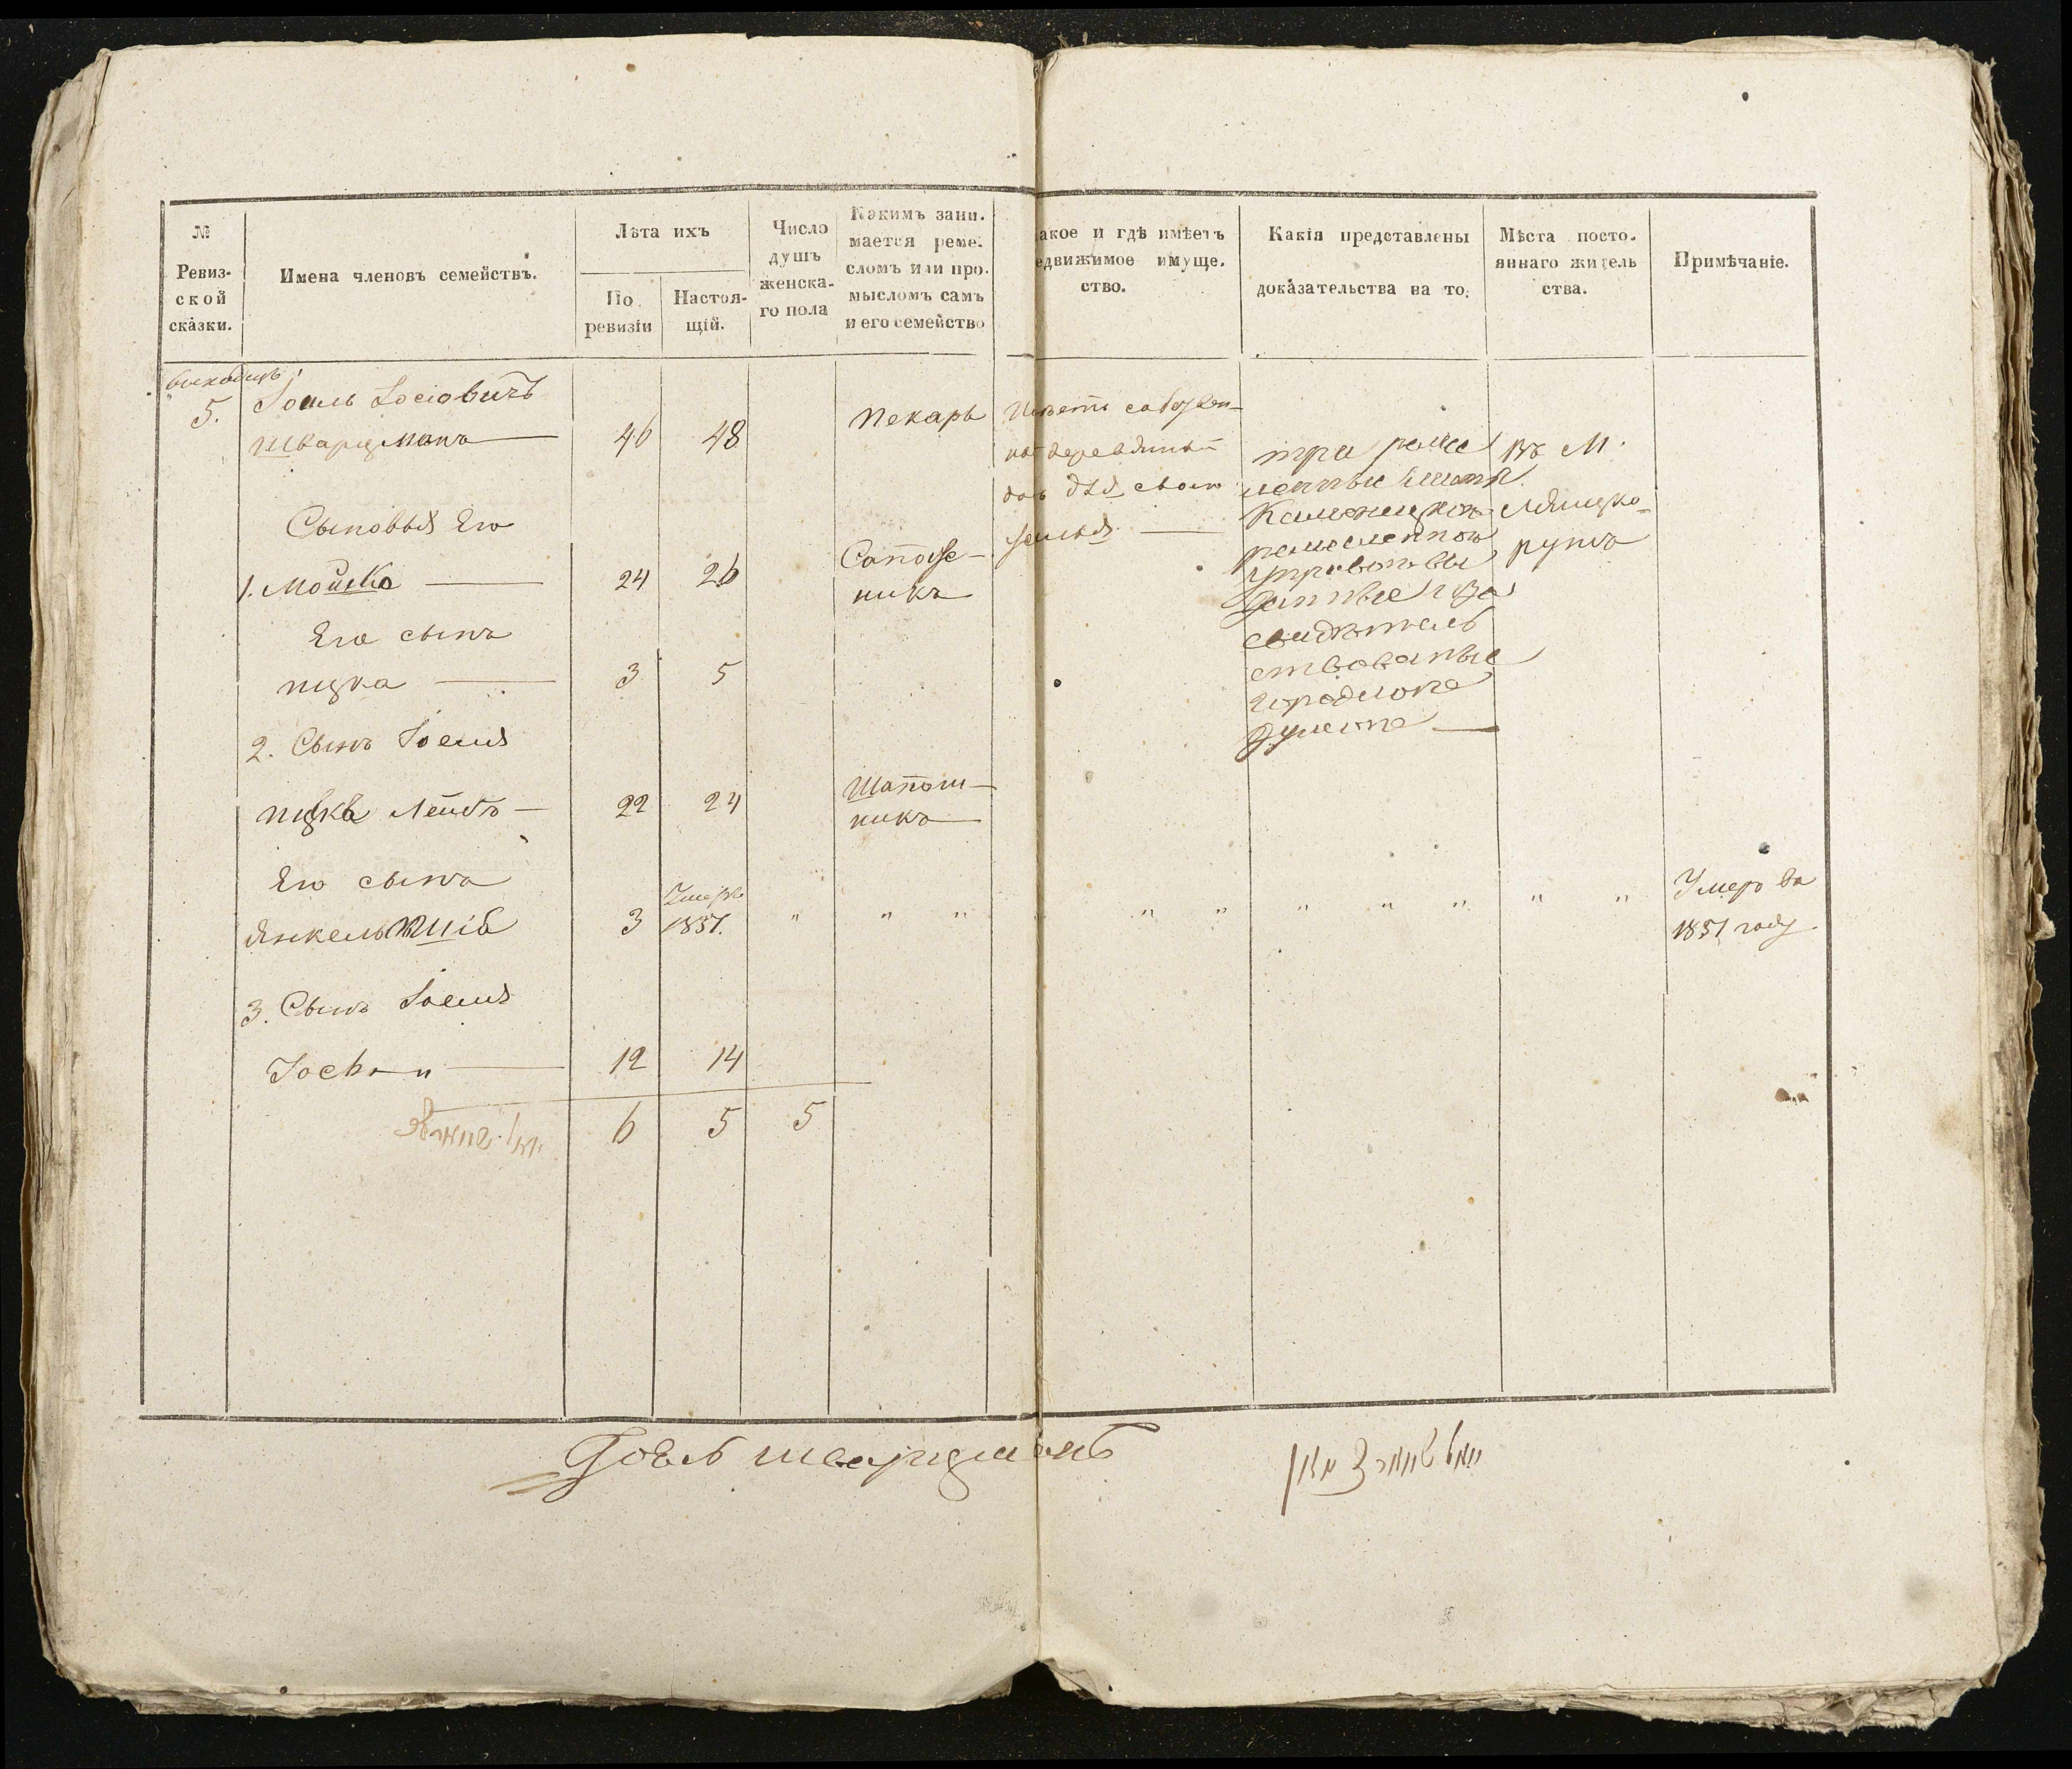 №
Ревиз-
ской
сказки.
Имена членовъ семействъ.
Лѣта ихъ
По
ревизіи
Настоя-
щій.
Число
душъ
женска-
го пола
Какимъ зани-
мается реме-
сломъ или про-
мысломъ самъ
и его семейство
акое и гдѣ имѣетъ
едвижимое имуще-
ство.
Какія представлены
доказательства на то.
Мѣста посто-
яннаго житель
ства.
Примѣчаніе.
5. Іоиль Іосіовичъ
Шварцманъ 46 48 Пекарь
Имѣетъ собствен-
деревянный
домъ для своего
семья
три ремес
ленные
Каменецкой
ремесленной
Управы вы
данные и за
свидѣтель
ствованые
городской
думою
Въ М.
Лянцко-
рунъ
Сыновья Его
1. Мошко 24 26 Сапож-
никъ
Его сынъ
Ицка 3 5
2. Сынъ Іоеля
Ицка Лейбъ 22 24 Шапош-
никъ
Его сынъ
Янкель 3 Умеръ
1851. " " " " " " " " " "
Умеръ въ
1851 году
3. Сынъ Іоеля
12 14
6 5 5
Іоель Шварцманъ
יואל שווארצמאן